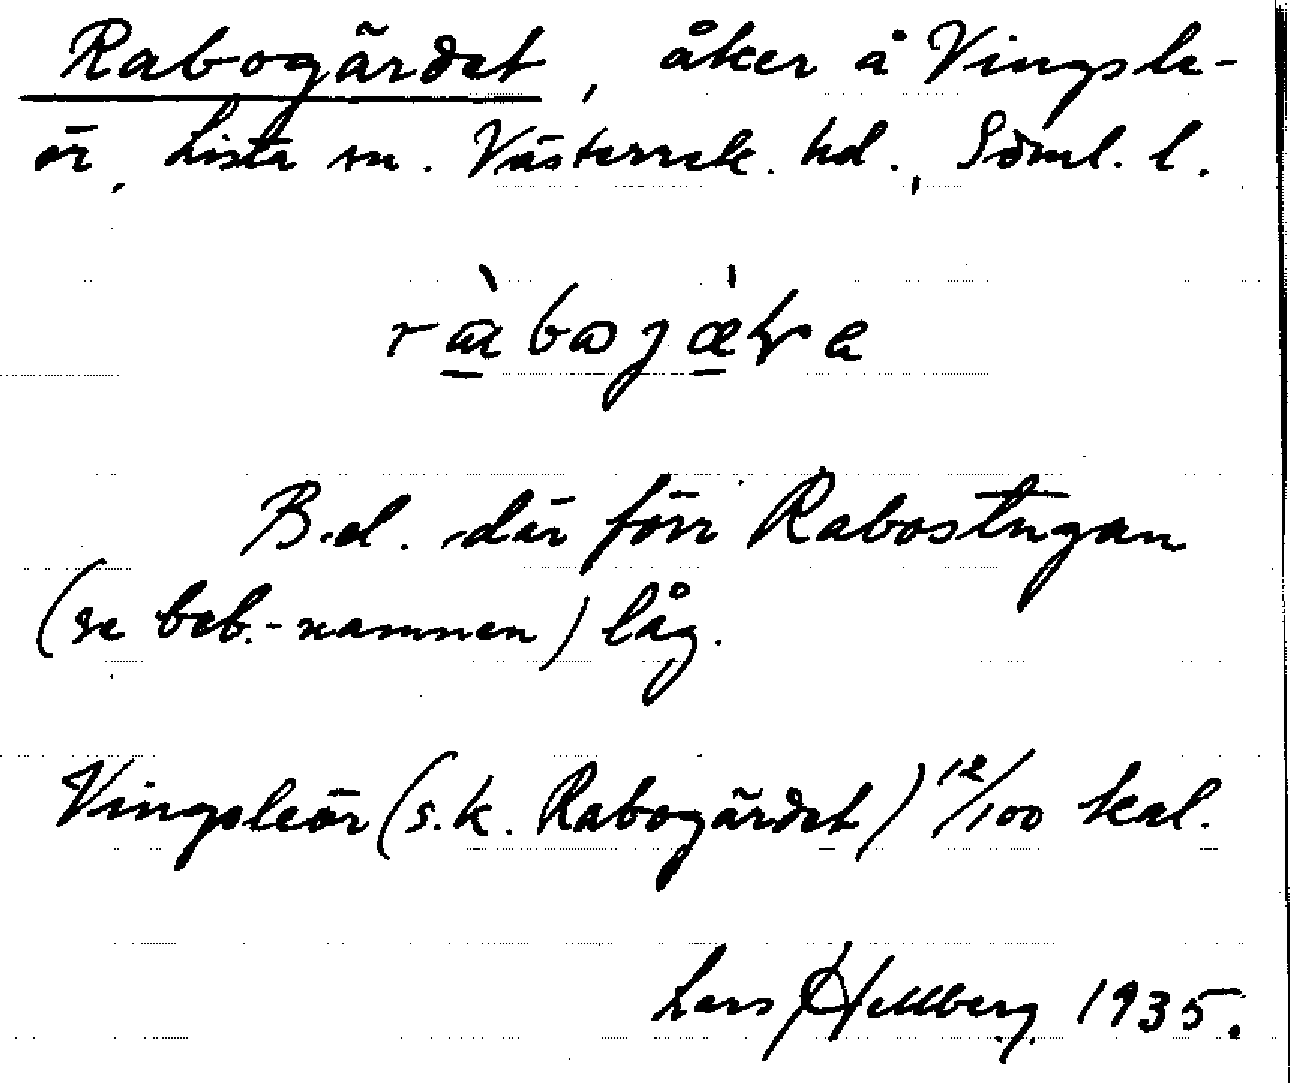 Rabogärdet, åker å Vingsle-
ör, Lista sn. Västerrek. hd., Söml. l.
B.d. där förr Rabostugan
(se beb.-namnen) låg.
Vingsleör (s.k. Rabogärdet) 12/100 kal.
Lars Hellberg 1935.